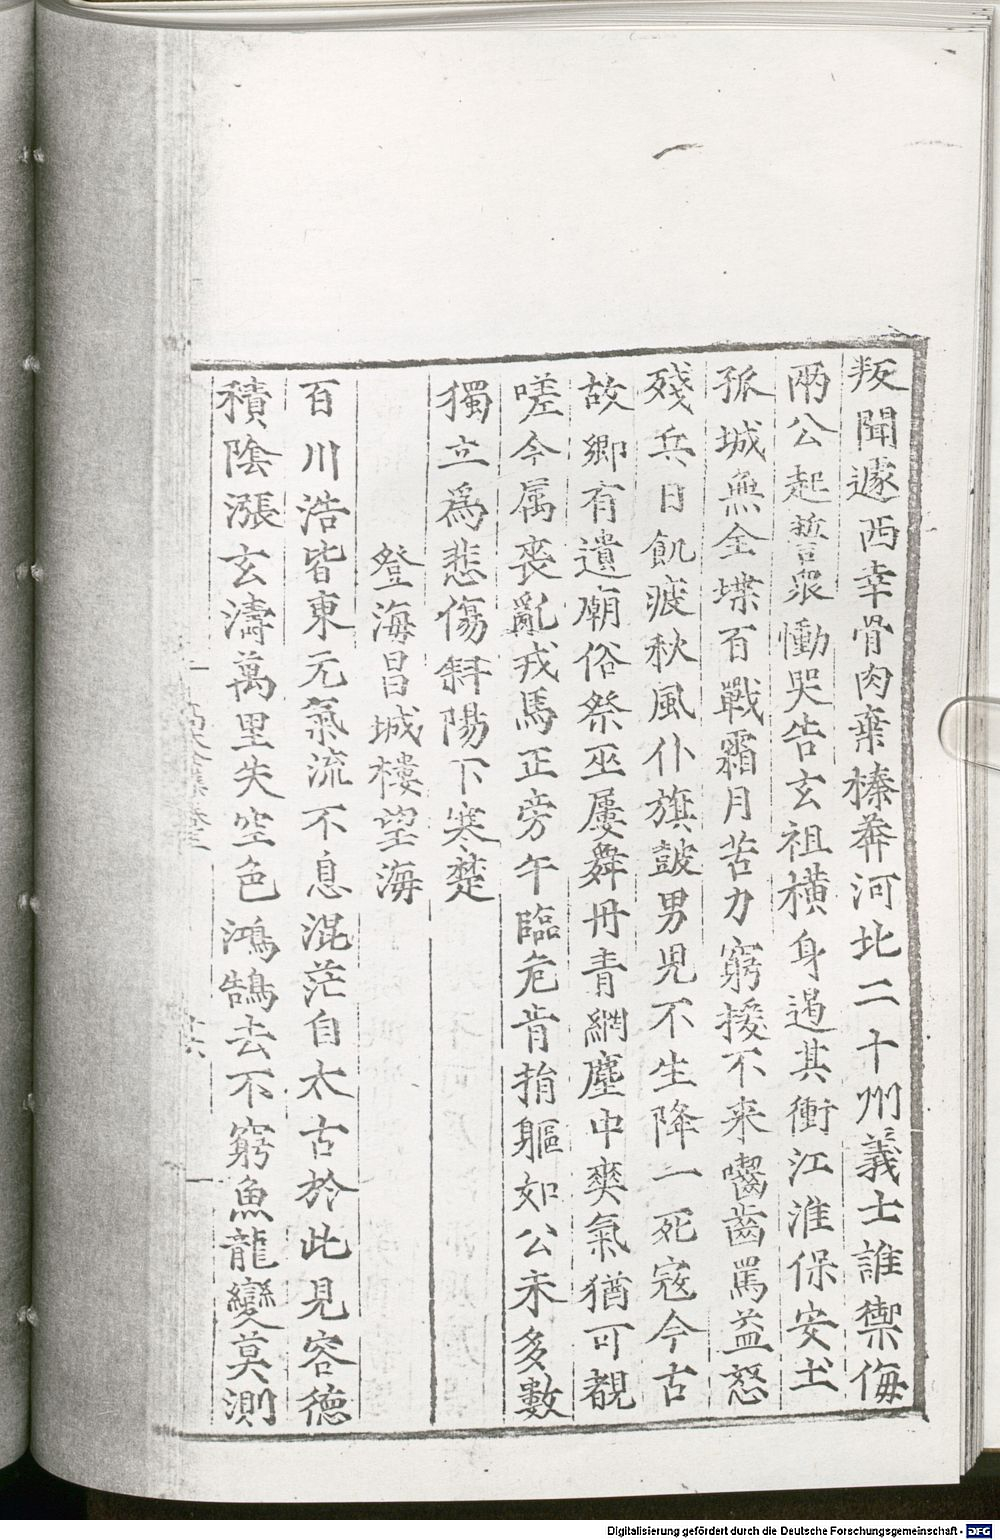 叛聞遽西幸骨肉棄榛莽河北二十州義士誰禦侮
兩公起誓衆慟哭告玄祖橫身遏其衝江淮保安土
孤城無全堞百戰霜月苦力窮援不来嚙齒罵益怒
殘兵日飢疲秋風仆旗鼓男児不生降一死寇今古
故郷有遺廟俗祭巫屢舞丹青網塵中爽氣猶可覩
嗟今属喪亂戎馬正旁午臨危肯捐軀如公未多數
獨立爲悲傷斜陽下寒楚
登海昌城樓望海
百川浩皆東元氣流不息混茫自太古於此見容德
積陰漲玄濤萬里失空色鴻鵠去不窮魚龍變莫測
Digitalisierung gefördert durch die Deutsche Forschungsgemeinschaft - DFG